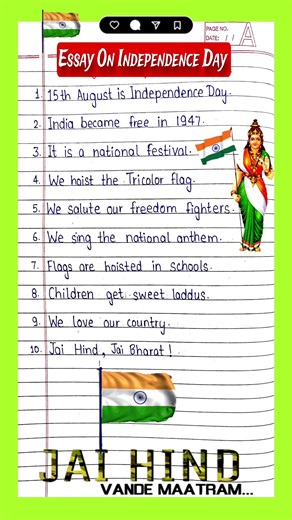 PAGE NO.
DATE: / /
A
ESSAY ON INDEPENDENCE DAY
1. 15th August is Independence Day.
2. India became free in 1947.
3. It is a national festival.
4. We hoist the Tricolor flag.
5. We salute our freedom fighters.
6. We sing the national anthem.
7. Flags are hoisted in schools.
8. Children get sweet laddus.
9. We love our country.
10. Jai Hind, Jai Bharat!
JAI HIND
VANDE MAATRAM...